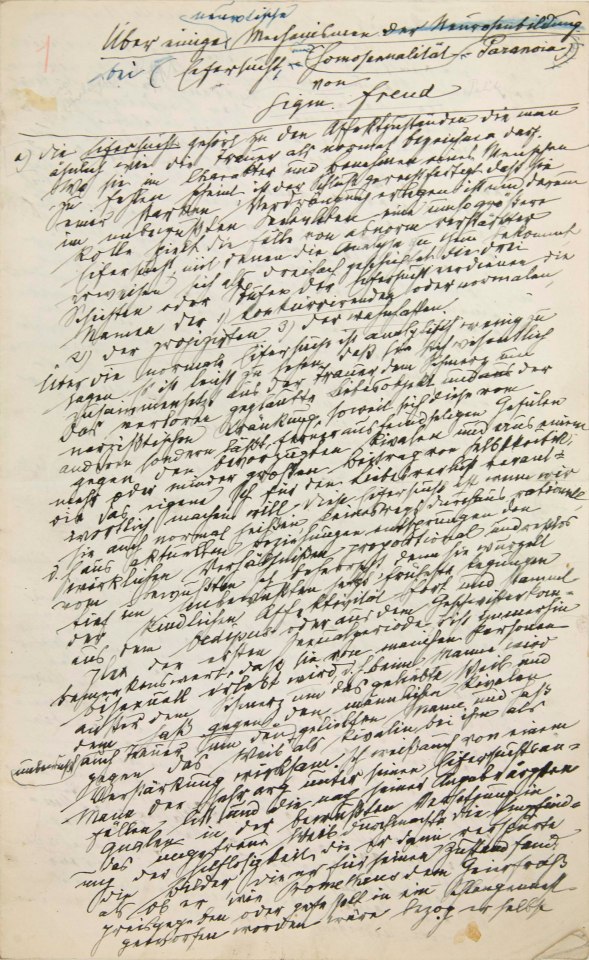 1
neurotische
Über einige Mechanismen der Neurosenbildung
bei (Eifersucht, Homosexualität, Paranoia)
von
Sigm. Freud
a) Die Eifersucht gehört zu den Affektzuständen die man
ähnlich wie die Trauer als normal bezeichnen darf.
Wo sie im Charakter und Benehmen eines Menschen
zu fehlen scheint ist der Schluß gerechtfertigt, daß sie
einer starken Verdrängung erlegen ist und darum
im unbewußten Seelenleben eine umso größere
Rolle spielt. Die Fälle von abnorm verstärkter
Eifersucht, mit denen die Analyse zu thun bekommt,
erweisen sich als dreifach geschichtet. Die drei
Schichten oder Stufen der Eifersucht verdienen die
Namen der 1) konkurrierenden oder normalen,
2) der projizirten 3) der wahnhaften.
Über die normale Eifersucht ist analytisch wenig zu
sagen. Es ist leicht zu sehen, daß sie sich wesentlich
zusammensetzt aus der Trauer, dem Schmerz um
das verloren geglaubte Liebesobjekt und aus der
narzißtischen Kränkung, soweit sich diese von
anderem sondern läßt, ferner aus feindseligen Gefülen
gegen den bevorzugten Rivalen und aus einem
mehr oder minder großen Beitrag von Selbstkritik,
die das eigene Ich für den Liebesverlust verant-
wortlich machen will. Diese Eifersucht ist, wenn wir
sie auch normal heißen, keineswegs durchaus rationell,
d. h. aus aktuellen Beziehungen entsprungen, den
wirklichen Verhältnißen proportional und restlos
vom bewußten Ich beherrscht, denn sie wurzelt
tief im Unbewußten, setzt früheste Regungen
der kindlichen Affektivität fort und stammt
aus dem Oedipus- oder aus dem Geschwisterkom-
plex der ersten Sexualperiode. Es ist immerhin
bemerkenswert, daß sie von manchen Personen
bisexuell erlebt wird, d. h. beim Manne wird
außer dem Schmerz um das geliebte Weib und
dem Haß gegen den männlichen Rivalen
unbewußt
auch Trauer um den geliebten Mann und Haß
gegen das Weib als Rivalin bei ihm als
Verstärkung wirksam. Ich weiß auch von einem
Manne der sehr arg unter seinen Eifersuchtsan-
fällen litt und die nach seiner Angabe ärgsten
Qualen in der bewußten Versetzung in
das ungetreue Weib durchmachte. Die Empfind-
ung der Hilflosigkeit, die er dann verspürte
die Bilder, die er für seinen Zustand fand,
als ob er wie Prometheus dem Geierfraß
preisgegeben oder gefesselt in ein Schlangennest
geworfen worden wäre, bezog er selbst